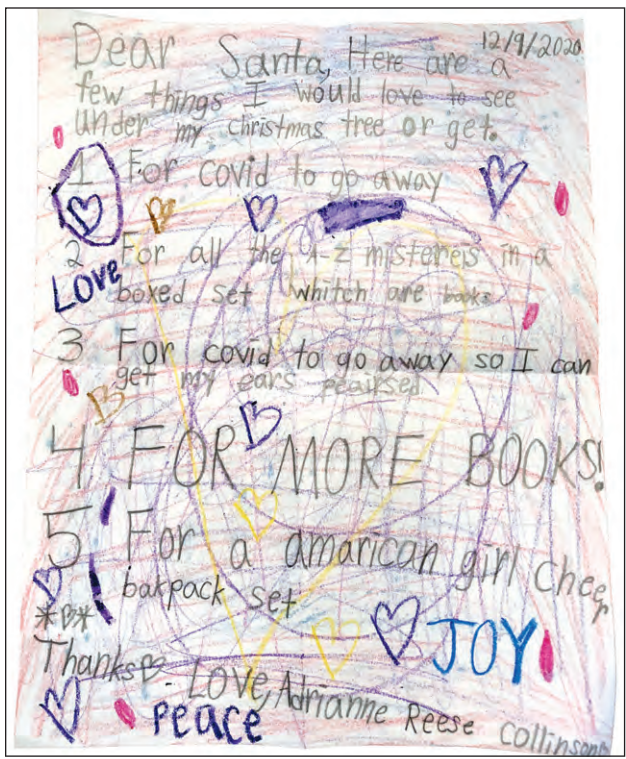 12/9/2020
Dear Santa, Here are a
few things I would love to see
under my christmas tree or get.
1 For covid to go away
2 For all the A-Z mistereis in a
Love
boxed set whitch are books
3 For covid to go away so I can
get my ears peairsed
4 FOR MORE BOOKS!
5 For a amarican girl cheer
bakpack set
JOY
Thanks
Love, Adrianne Reese Collinson
Peace